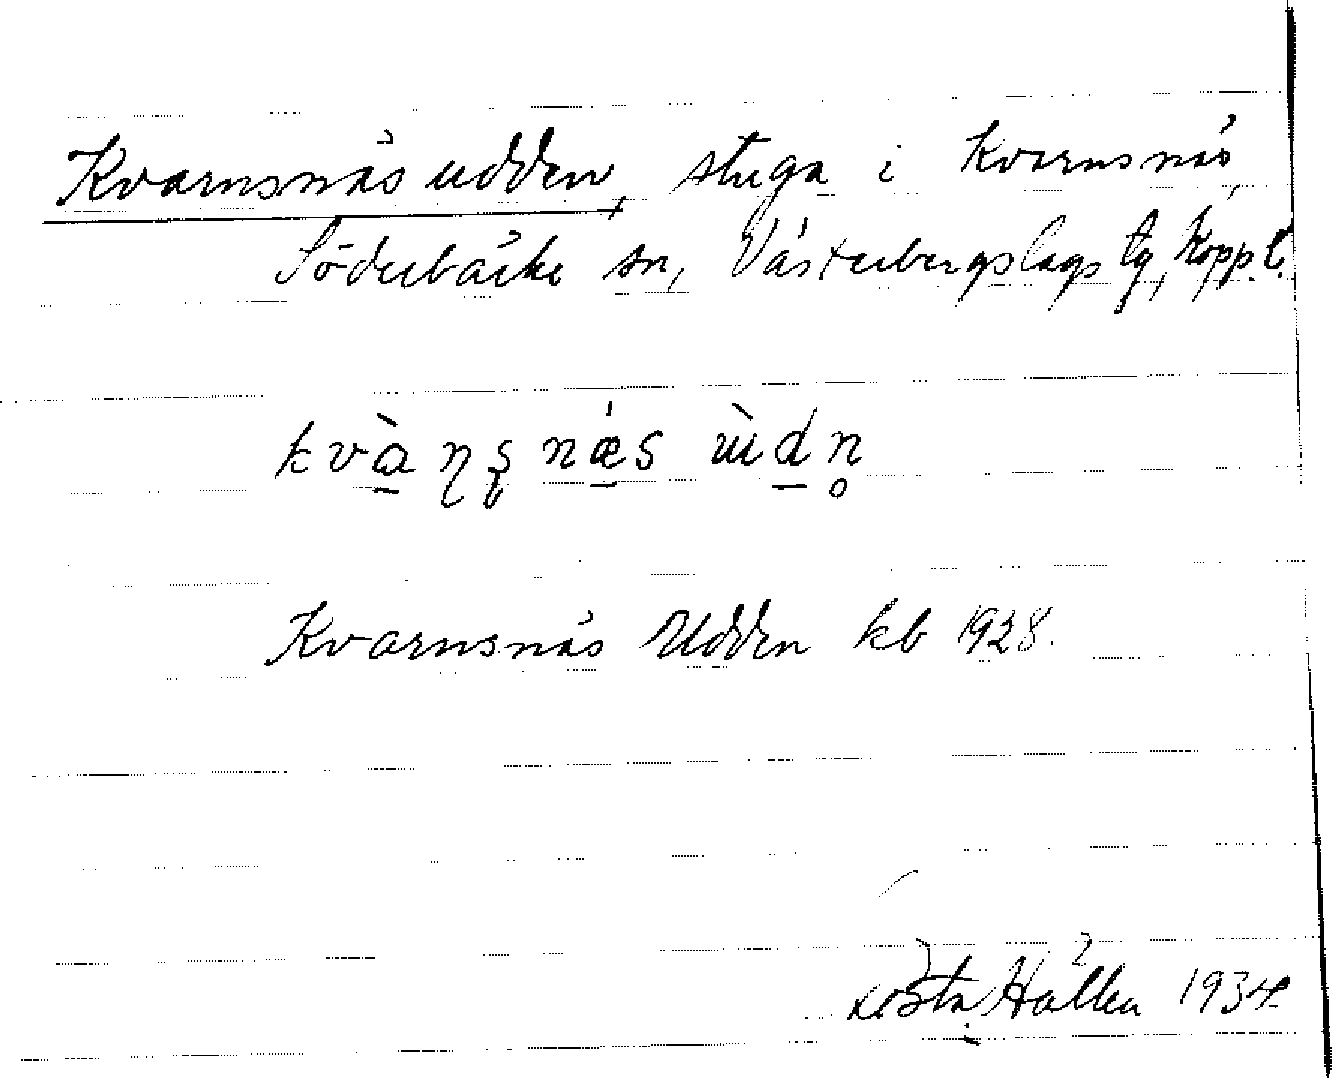 Kvarnsnäs udden, stuga i Kvarnsnäs,
Söderbärke sn, Västerbergslags tg, Kopp. l.
kvàṇṣnǽs ùdn̥
Kvarnsnäs Udden kb 1928.
Gösta Hallén 1934